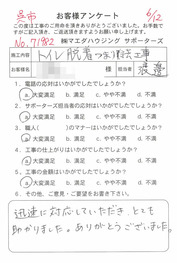 呉市 お客様アンケート 6/12
この度は工事のご用命を頂きありがとうございました。お手数で
すがご記入頂き、ご返送頂きますようお願い申し上げます。
No.7182 ㈱マエダハウジング サポーターズ
施工内容 トイレ脱着つまり除去工事
お客様名 様 担当者 渡邊
1. 電話の応対はいかがでしたでしょうか？
a.大変満足 b.満足 c.やや不満 d.不満
2. サポーターズ担当者の応対はいかがでしたでしょうか？
a.大変満足 b.満足 c.やや不満 d.不満
3. 職人( )のマナーはいかがでしたでしょうか？
a.大変満足 b.満足 c.やや不満 d.不満
4. 工事の仕上がりはいかがでしたでしょうか？
a.大変満足 b.満足 c.やや不満 d.不満
5. 工事の価格はいかがでしたでしょうか？
a.大変満足 b.満足 c.やや不満 d.不満
6. その他、ご意見・ご要望をお書き下さい。
迅速に対応していただき、とても
助かりました。ありがとうございました。